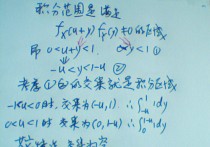 积分范围是满足
f_X(u+y) f_Y(y) ≠ 0 的区域
即 0<u+y<1 0<y<1 ①
→ -u<y<1-u ②
考虑①②的交集就是积分区域
-1<u<0时，交集为(-u,1) ∴∫_{-u}^{1} 1dy
0<u<1时 交集为(0,1-u) ∴∫_{0}^{1-u} 1dy